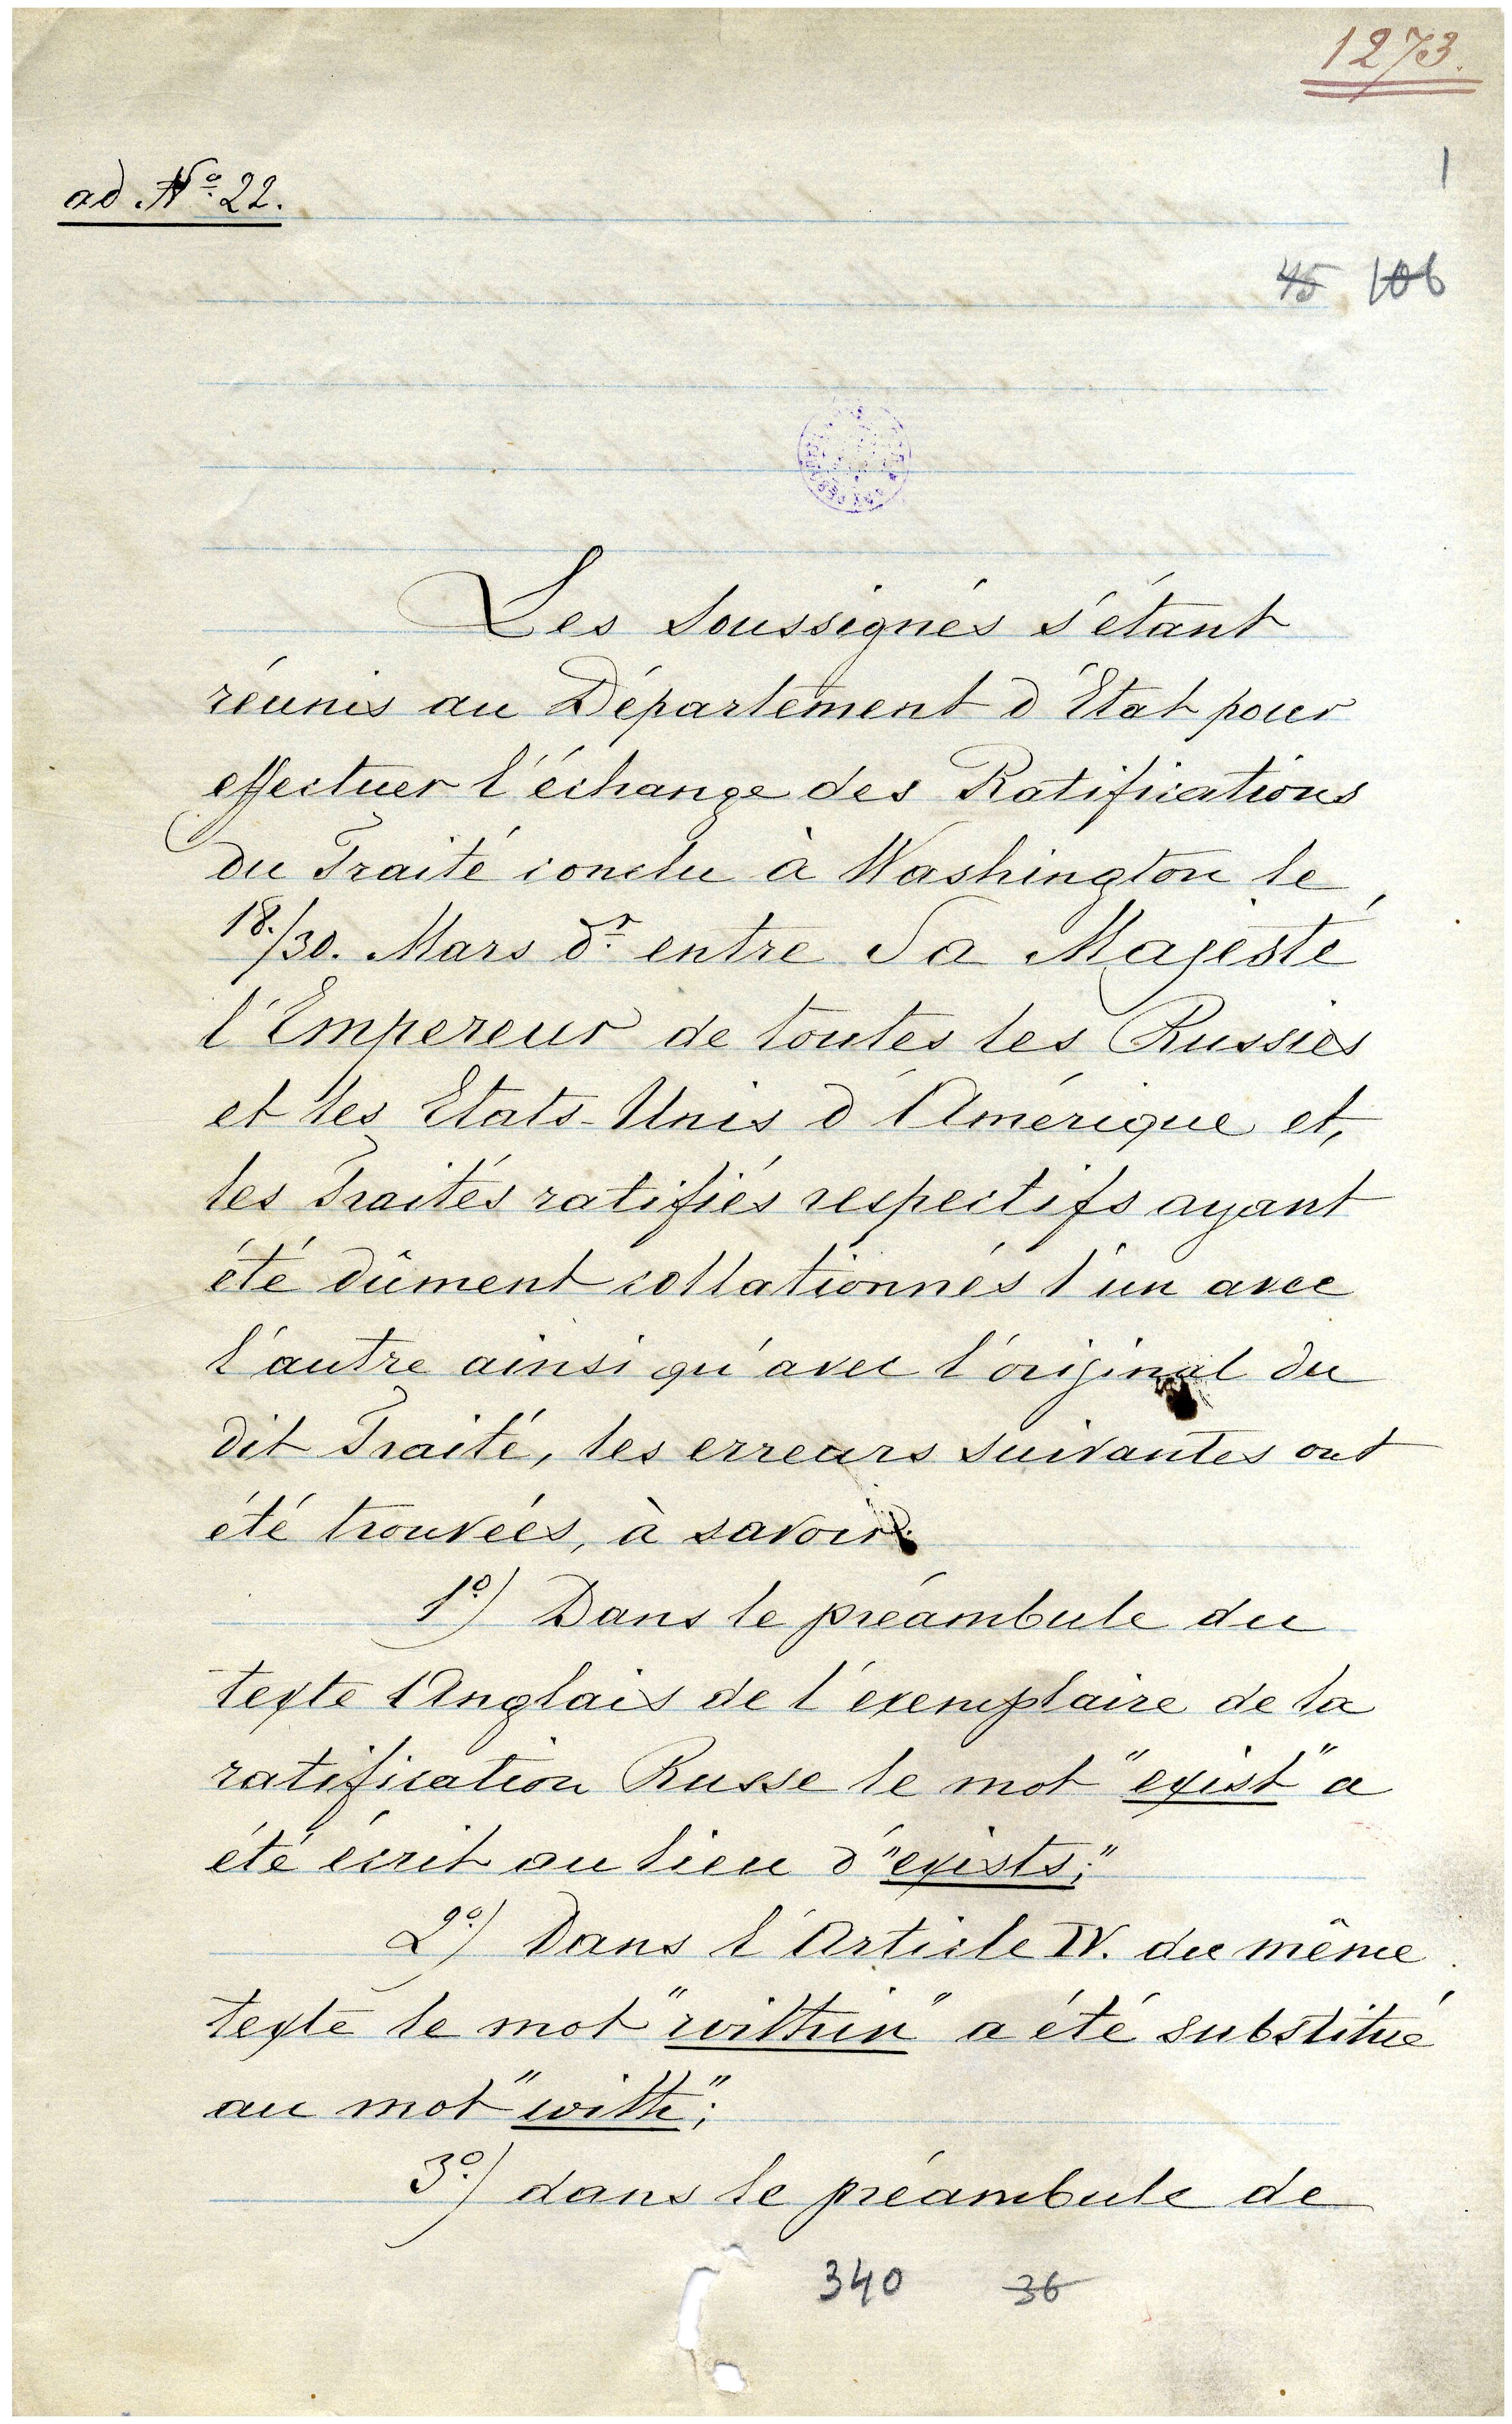 1273.
1
ad Nº 22.
45 106
Les Soussignés s'étant
réunis au Département d'Etat pour
effectuer l'échange des Ratifications
du Traité conclu à Washington le
18./30. Mars dr entre Sa Majesté
l'Empereur de toutes les Russies
et les Etats-Unis d'Amérique et,
les Traités ratifiés respectifs ayant
été dûment collationnés l'un avec
l'autre ainsi qu'avec l'original du
dit Traité, les erreurs suivantes ont
été trouvées, à savoir:
1º) Dans le préambule du
texte Anglais de l'exemplaire de la
ratification Russe le mot "exist" a
été écrit au lieu d'"exists;"
2º) Dans l'Article IV. du même
texte le mot "within" a été substitué
au mot "with";
3º) dans le préambule de
340 36